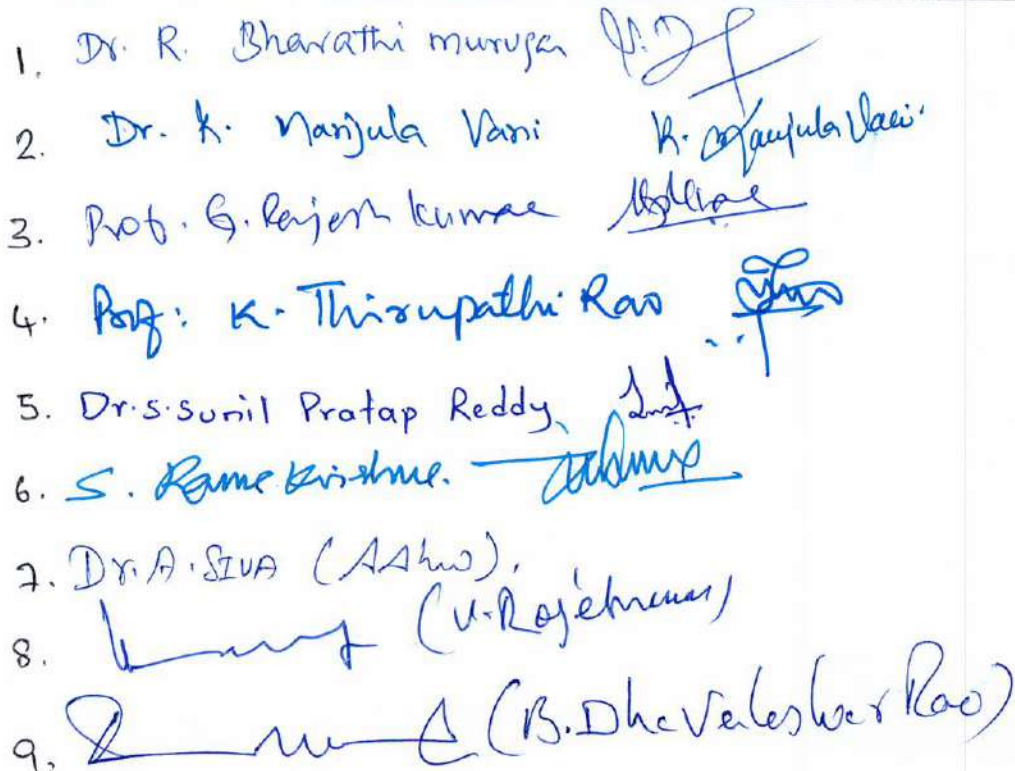 1. Dr. R. Bharathi murugan
2. Dr. K. Manjula Vani K. Manjula Vani
3. Prof. G. Rajesh Kumar
4. Prof: K. Thirupathi Rao
5. Dr. S. Sunil Pratap Reddy
6. S. Rama Krishna.
7. Dr. A. SIVA
8.
9. (B. Dhavaleshwar Rao)